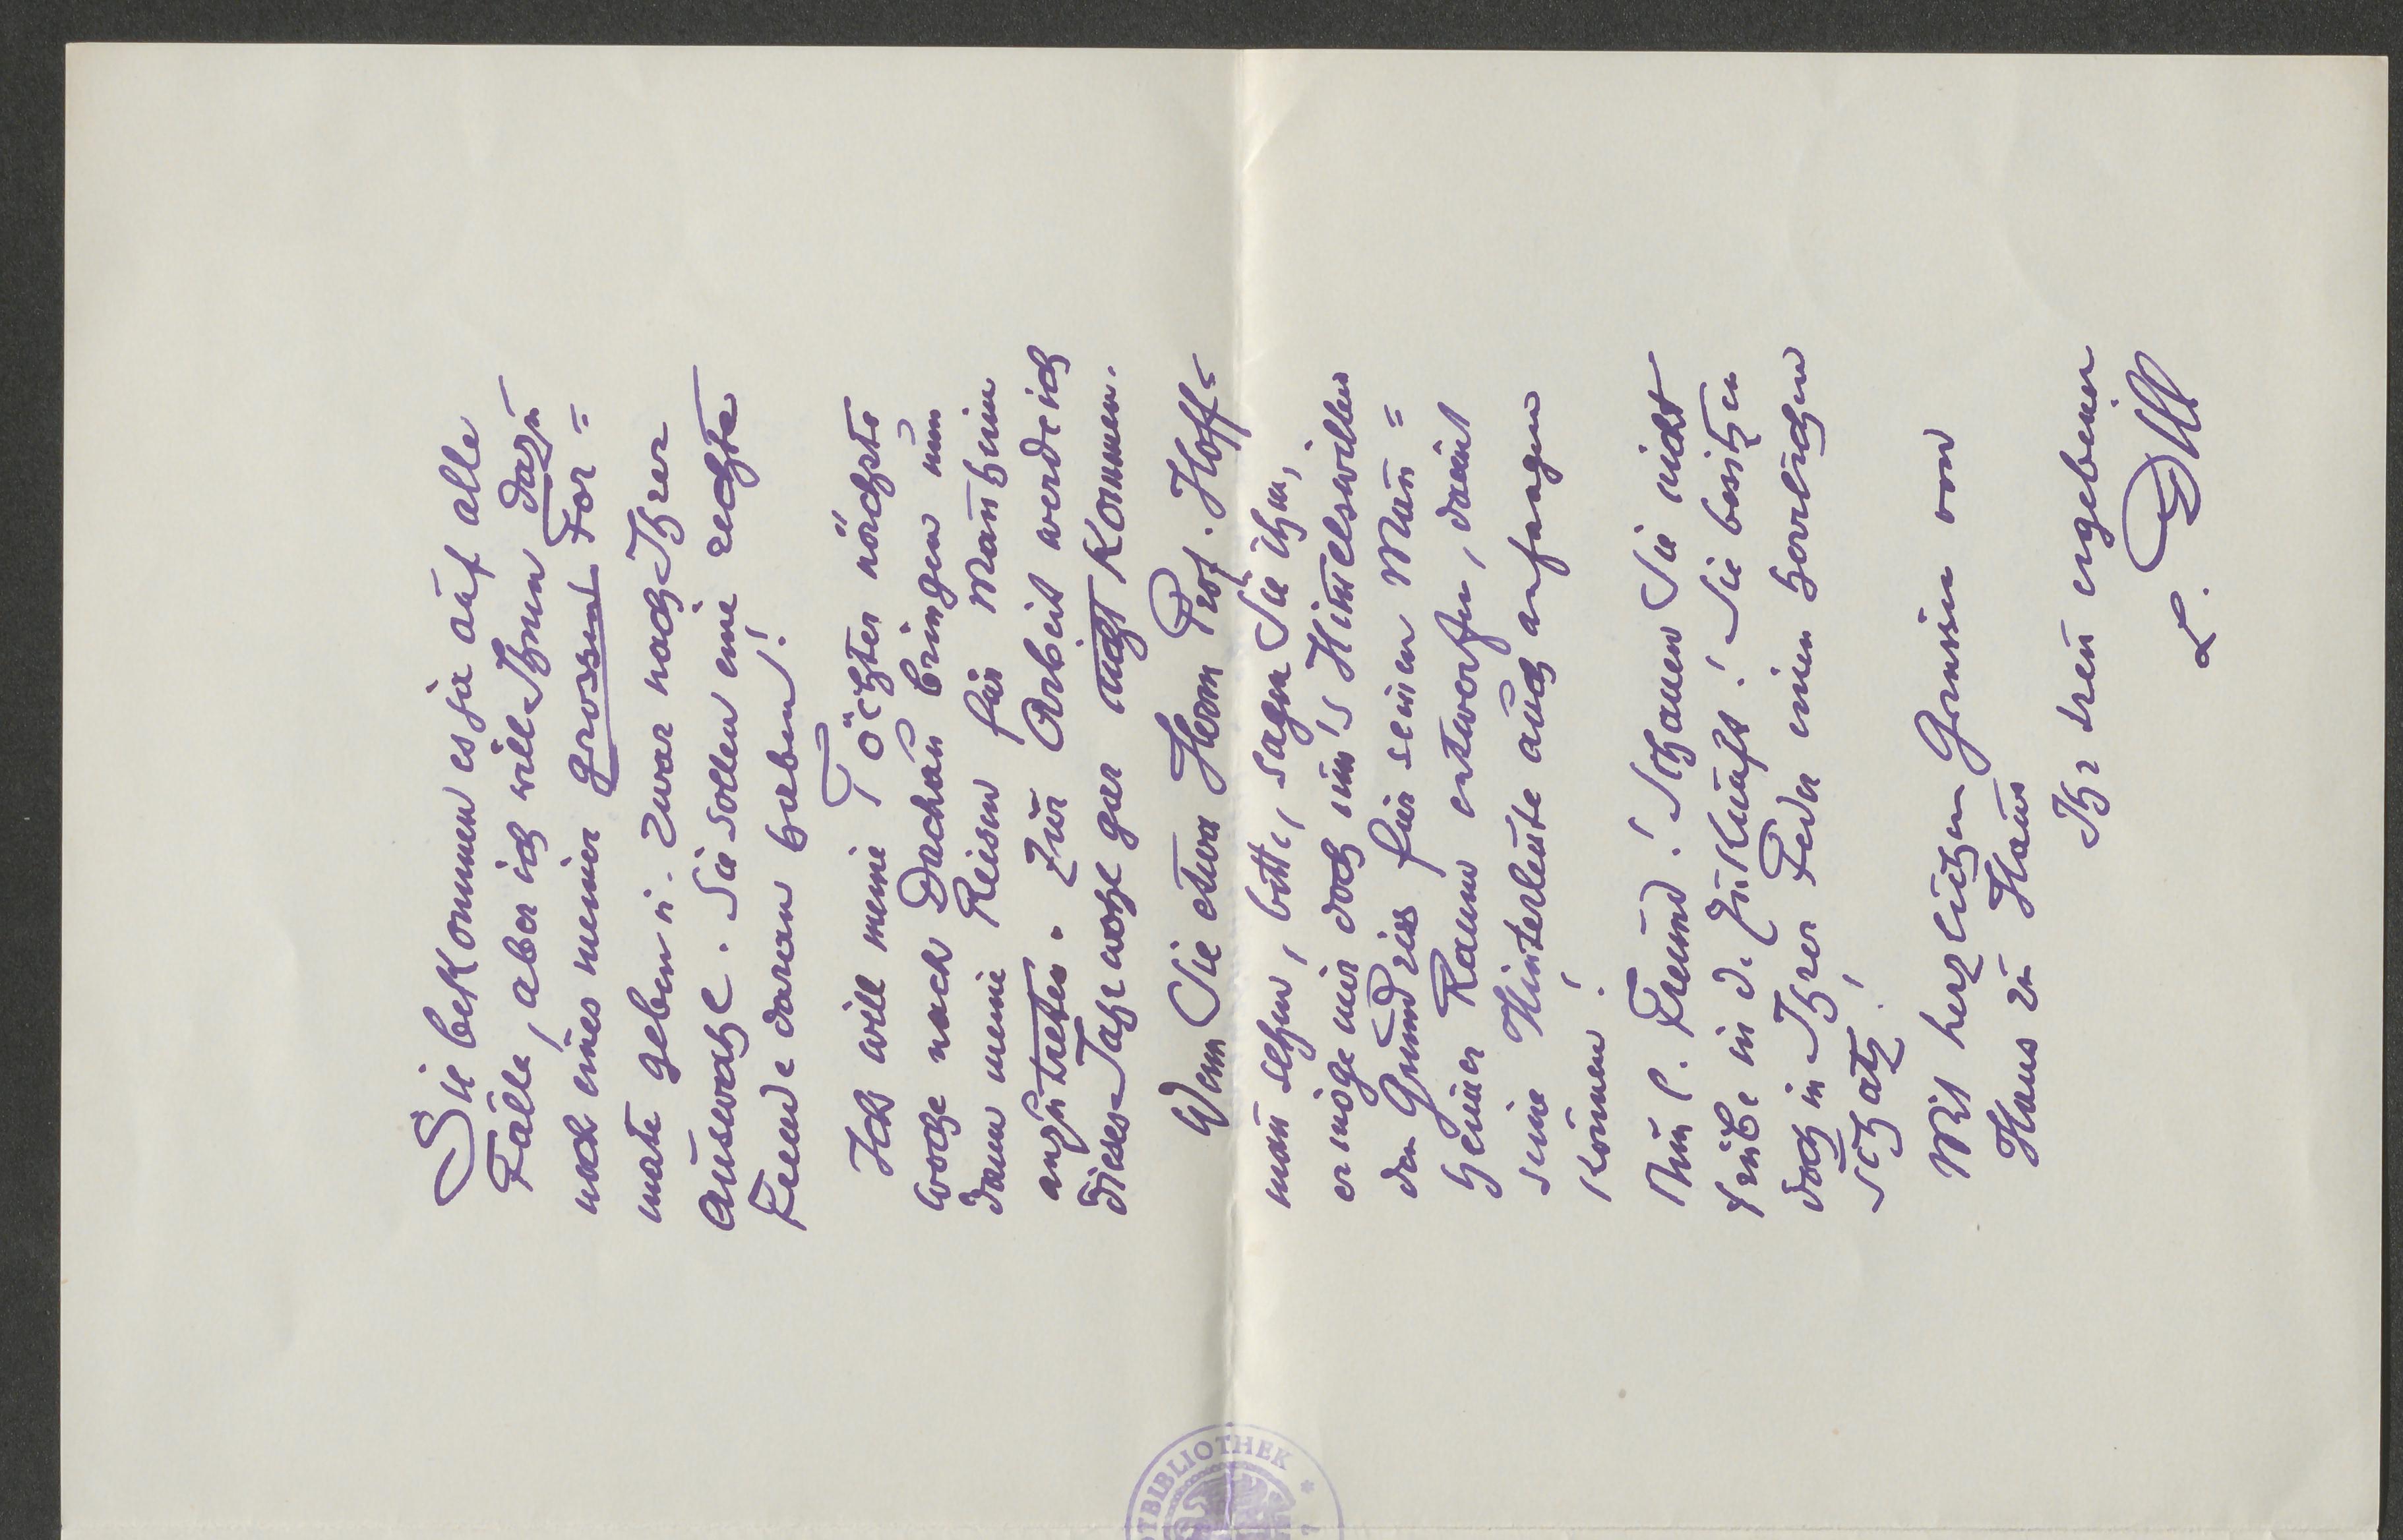 Sie bekommen es ja auf alle
Fälle, aber ich will Ihnen dazu
noch eines meiner grossent For=
mate geben u. zwar nach Ihrer
Auswahl. Sie sollen eine rechte
Freude daran haben!
Ich will meine Töchter nächste
Woche nach Dachau bringen um
dann meine Reisen für Mannheim
anzutreten. Zur Arbeit werde ich
dieses Jahr wohl gar nicht kommen.
Wenn Sie etwa Herrn Prof. Hoff=
mann sehen, bitte, sagen Sie ihm,
er möge mir doch um's Himmelswillen
den Grundriss für seinen Mann=
heimer Raum entwerfen, damit
seine Hinterleute auch anfangen
können!
Nun l. Freund! Schauen Sie nicht
trübe in d. Zukunft! Sie besitzen
doch in Ihrer Feder einen herrlichen
Schatz!
Mit herzlichen Grüssen von
Haus zu Haus
Ihr treu ergebener
L. Dill
BIBLIOTHEK